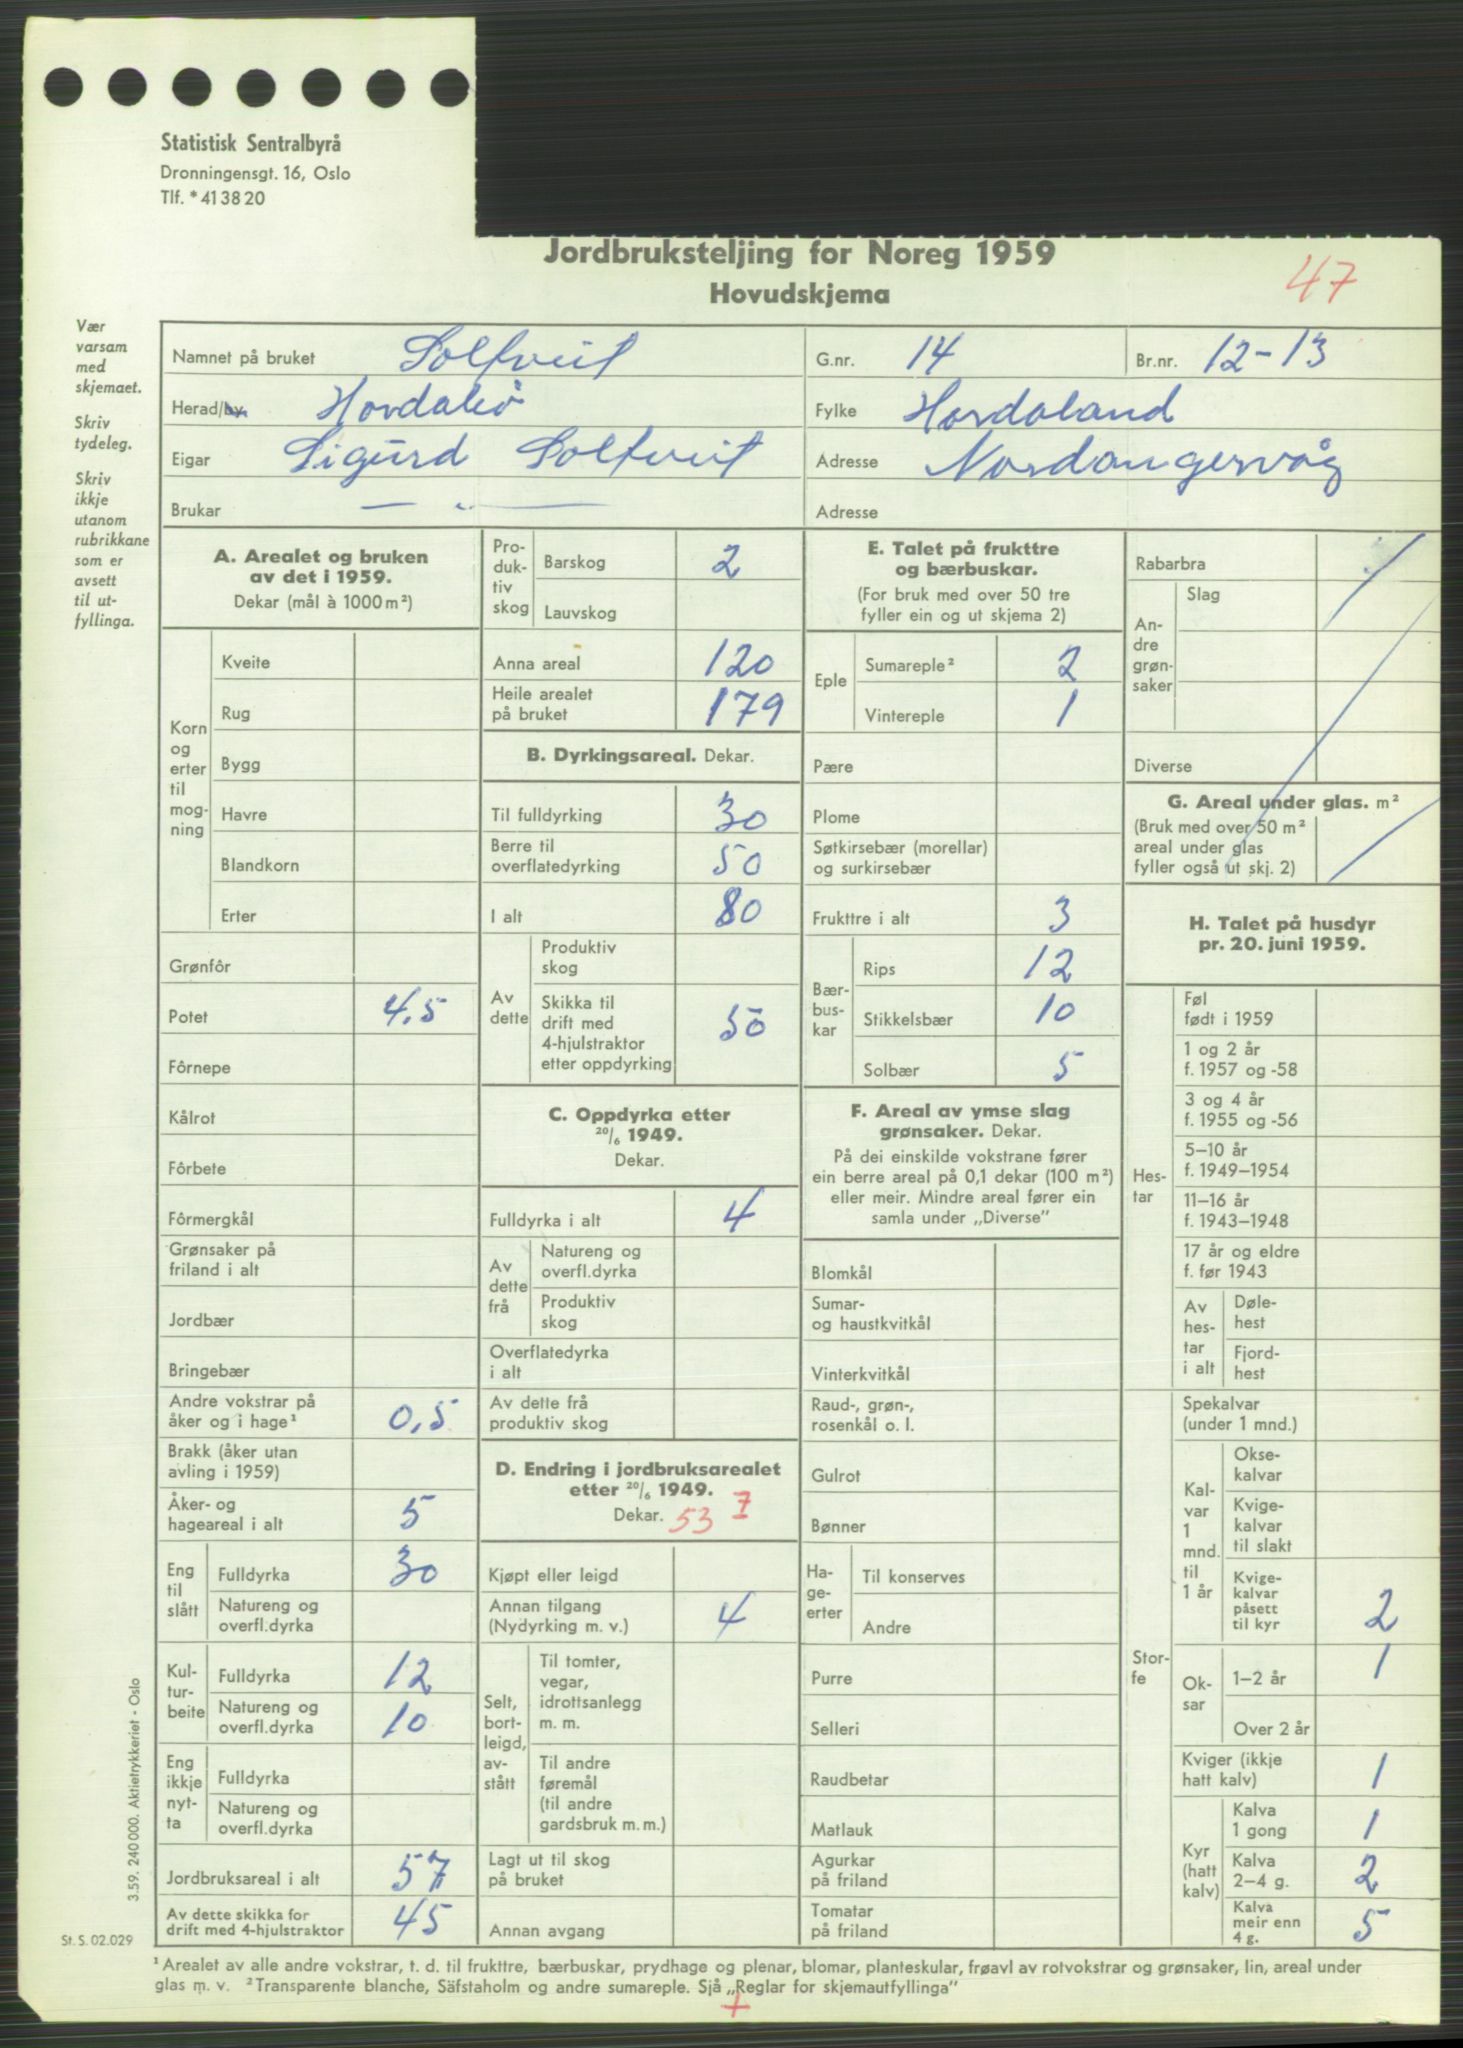 Statistisk Sentralbyrå
Dronningensgt. 16, Oslo
Tlf. * 41 38 20
Jordbruksteljing for Noreg 1959
Hovudskjema
47
Vær
varsam
med
skjemaet.
Skriv
tydeleg.
Skriv
ikkje
utanom
rubrikkane
som er
avsett
til ut-
fyllinga.
Namnet på bruket Solfveit G.nr. 14 Br.nr. 12-13
Herad/by Hordabø Fylke Hordaland
Eigar Sigurd Solfveit Adresse Nordangervåg
Brukar — „ — Adresse
A. Arealet og bruken
av det i 1959.
Dekar (mål à 1000 m²)
Korn og erter til mog-ning
Kveite
Rug
Bygg
Havre
Blandkorn
Erter
Grønfôr
Potet 4,5
Fôrnepe
Kålrot
Fôrbete
Fôrmergkål
Grønsaker på
friland i alt
Jordbær
Bringebær
Andre vokstrar på
åker og i hage¹ 0,5
Brakk (åker utan
avling i 1959)
Åker- og
hageareal i alt 5
Eng til slått
Fulldyrka 30
Natureng og
overfl.dyrka
Kul-tur-beite
Fulldyrka 12
Natureng og
overfl.dyrka 10
Eng ikkje nyt-ta
Fulldyrka
Natureng og
overfl.dyrka
Jordbruksareal i alt 57
Av dette skikka for
drift med 4-hjulstraktor 45
Pro-duk-tiv skog
Barskog 2
Lauvskog
Anna areal 120
Heile arealet
på bruket 179
B. Dyrkingsareal. Dekar.
Til fulldyrking 30
Berre til
overflatedyrking 50
I alt 80
Av dette
Produktiv
skog
Skikka til
drift med
4-hjulstraktor
etter oppdyrking 50
C. Oppdyrka etter
20/6 1949.
Dekar.
Fulldyrka i alt 4
Av dette frå
Natureng og
overfl.dyrka
Produktiv
skog
Overflatedyrka
i alt
Av dette frå
produktiv skog
D. Endring i jordbruksarealet
etter 20/6 1949.
Dekar. 53 7
Kjøpt eller leigd
Annan tilgang
(Nydyrking m. v.) 4
Selt, bort-leigd, av-stått
Til tomter,
vegar,
idrottsanlegg
m. m.
Til andre
føremål
(til andre
gardsbruk m. m.)
Lagt ut til skog
på bruket
Annan avgang
E. Talet på frukttre
og bærbuskar.
(For bruk med over 50 tre
fyller ein og ut skjema 2)
Eple
Sumareple² 2
Vintereple 1
Pære
Plome
Søtkirsebær (morellar)
og surkirsebær
Frukttre i alt 3
Bær-bus-kar
Rips 12
Stikkelsbær 10
Solbær 5
F. Areal av ymse slag
grønsaker. Dekar.
På dei einskilde vokstrane fører
ein berre areal på 0,1 dekar (100 m²)
eller meir. Mindre areal fører ein
samla under „Diverse”
Blomkål
Sumar-
og haustkvitkål
Vinterkvitkål
Raud-, grøn-,
rosenkål o. l.
Gulrot
Bønner
Ha-ge-erter
Til konserves
Andre
Purre
Selleri
Raudbetar
Matlauk
Agurkar
på friland
Tomatar
på friland
Rabarbra
An-dre grøn-saker
Slag
Diverse
G. Areal under glas. m²
(Bruk med over 50 m²
areal under glas
fyller også ut skj. 2)
H. Talet på husdyr
pr. 20. juni 1959.
Hes-tar
Føl
født i 1959
1 og 2 år
f. 1957 og -58
3 og 4 år
f. 1955 og -56
5–10 år
f. 1949–1954
11–16 år
f. 1943–1948
17 år og eldre
f. før 1943
Av hes-tar i alt
Døle-
hest
Fjord-
hest
Stor-fe
Spekalvar
(under 1 mnd.)
Kal-var 1 mnd. til 1 år
Okse-
kalvar
Kvige-
kalvar
til slakt
Kvige-
kalvar
påsett
til kyr 2
Ok-sar
1–2 år 1
Over 2 år
Kviger (ikkje
hatt kalv) 1
Kyr (hatt kalv)
Kalva
1 gong 1
Kalva
2–4 g. 2
Kalva
meir enn
4 g. 5
3.59. 240 000. Aktietrykkeriet - Oslo
St. S. 02.029
¹ Arealet av alle andre vokstrar, t. d. til frukttre, bærbuskar, prydhage og plenar, blomar, planteskular, frøavl av rotvokstrar og grønsaker, lin, areal under
glas m. v. ² Transparente blanche, Säfstaholm og andre sumareple. Sjå „Reglar for skjemautfyllinga”
+